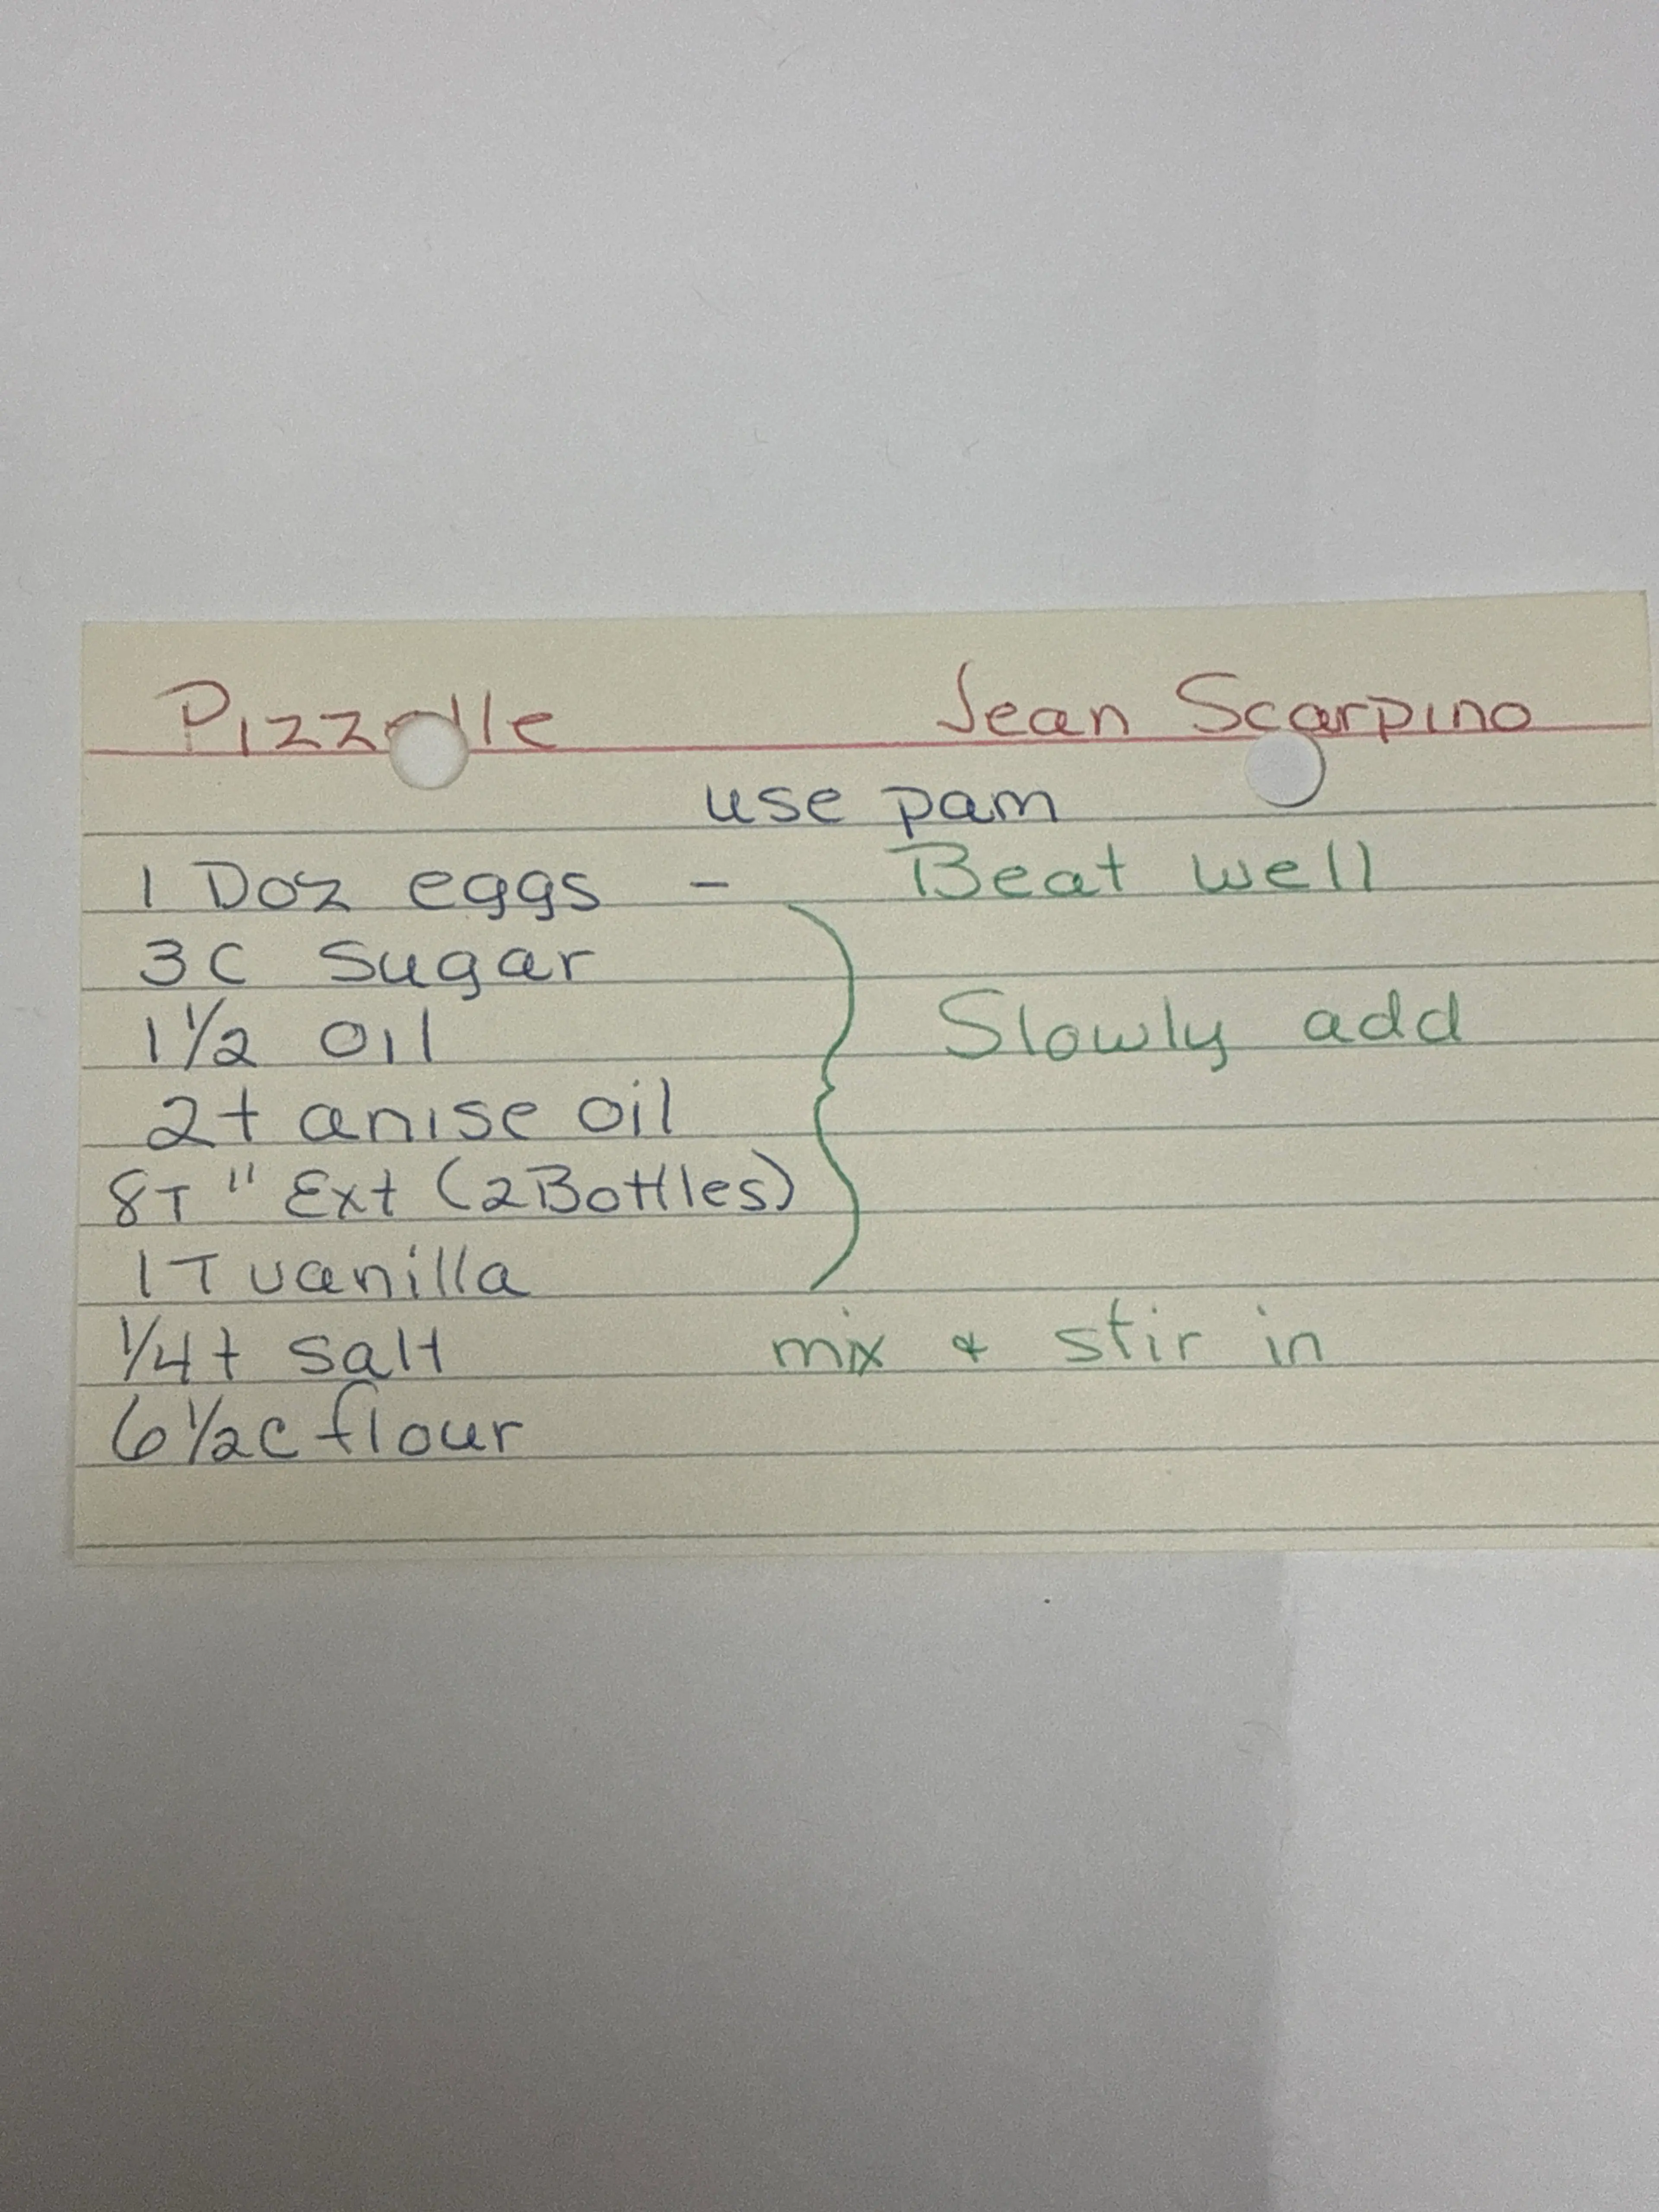 Pizzelle Jean Scarpino
use pam
1 Doz eggs - Beat well
3C Sugar
1 1/2 oil Slowly add
2t anise oil
8T " Ext (2Bottles)
1T vanilla
1/4t salt mix & stir in
6 1/2C flour